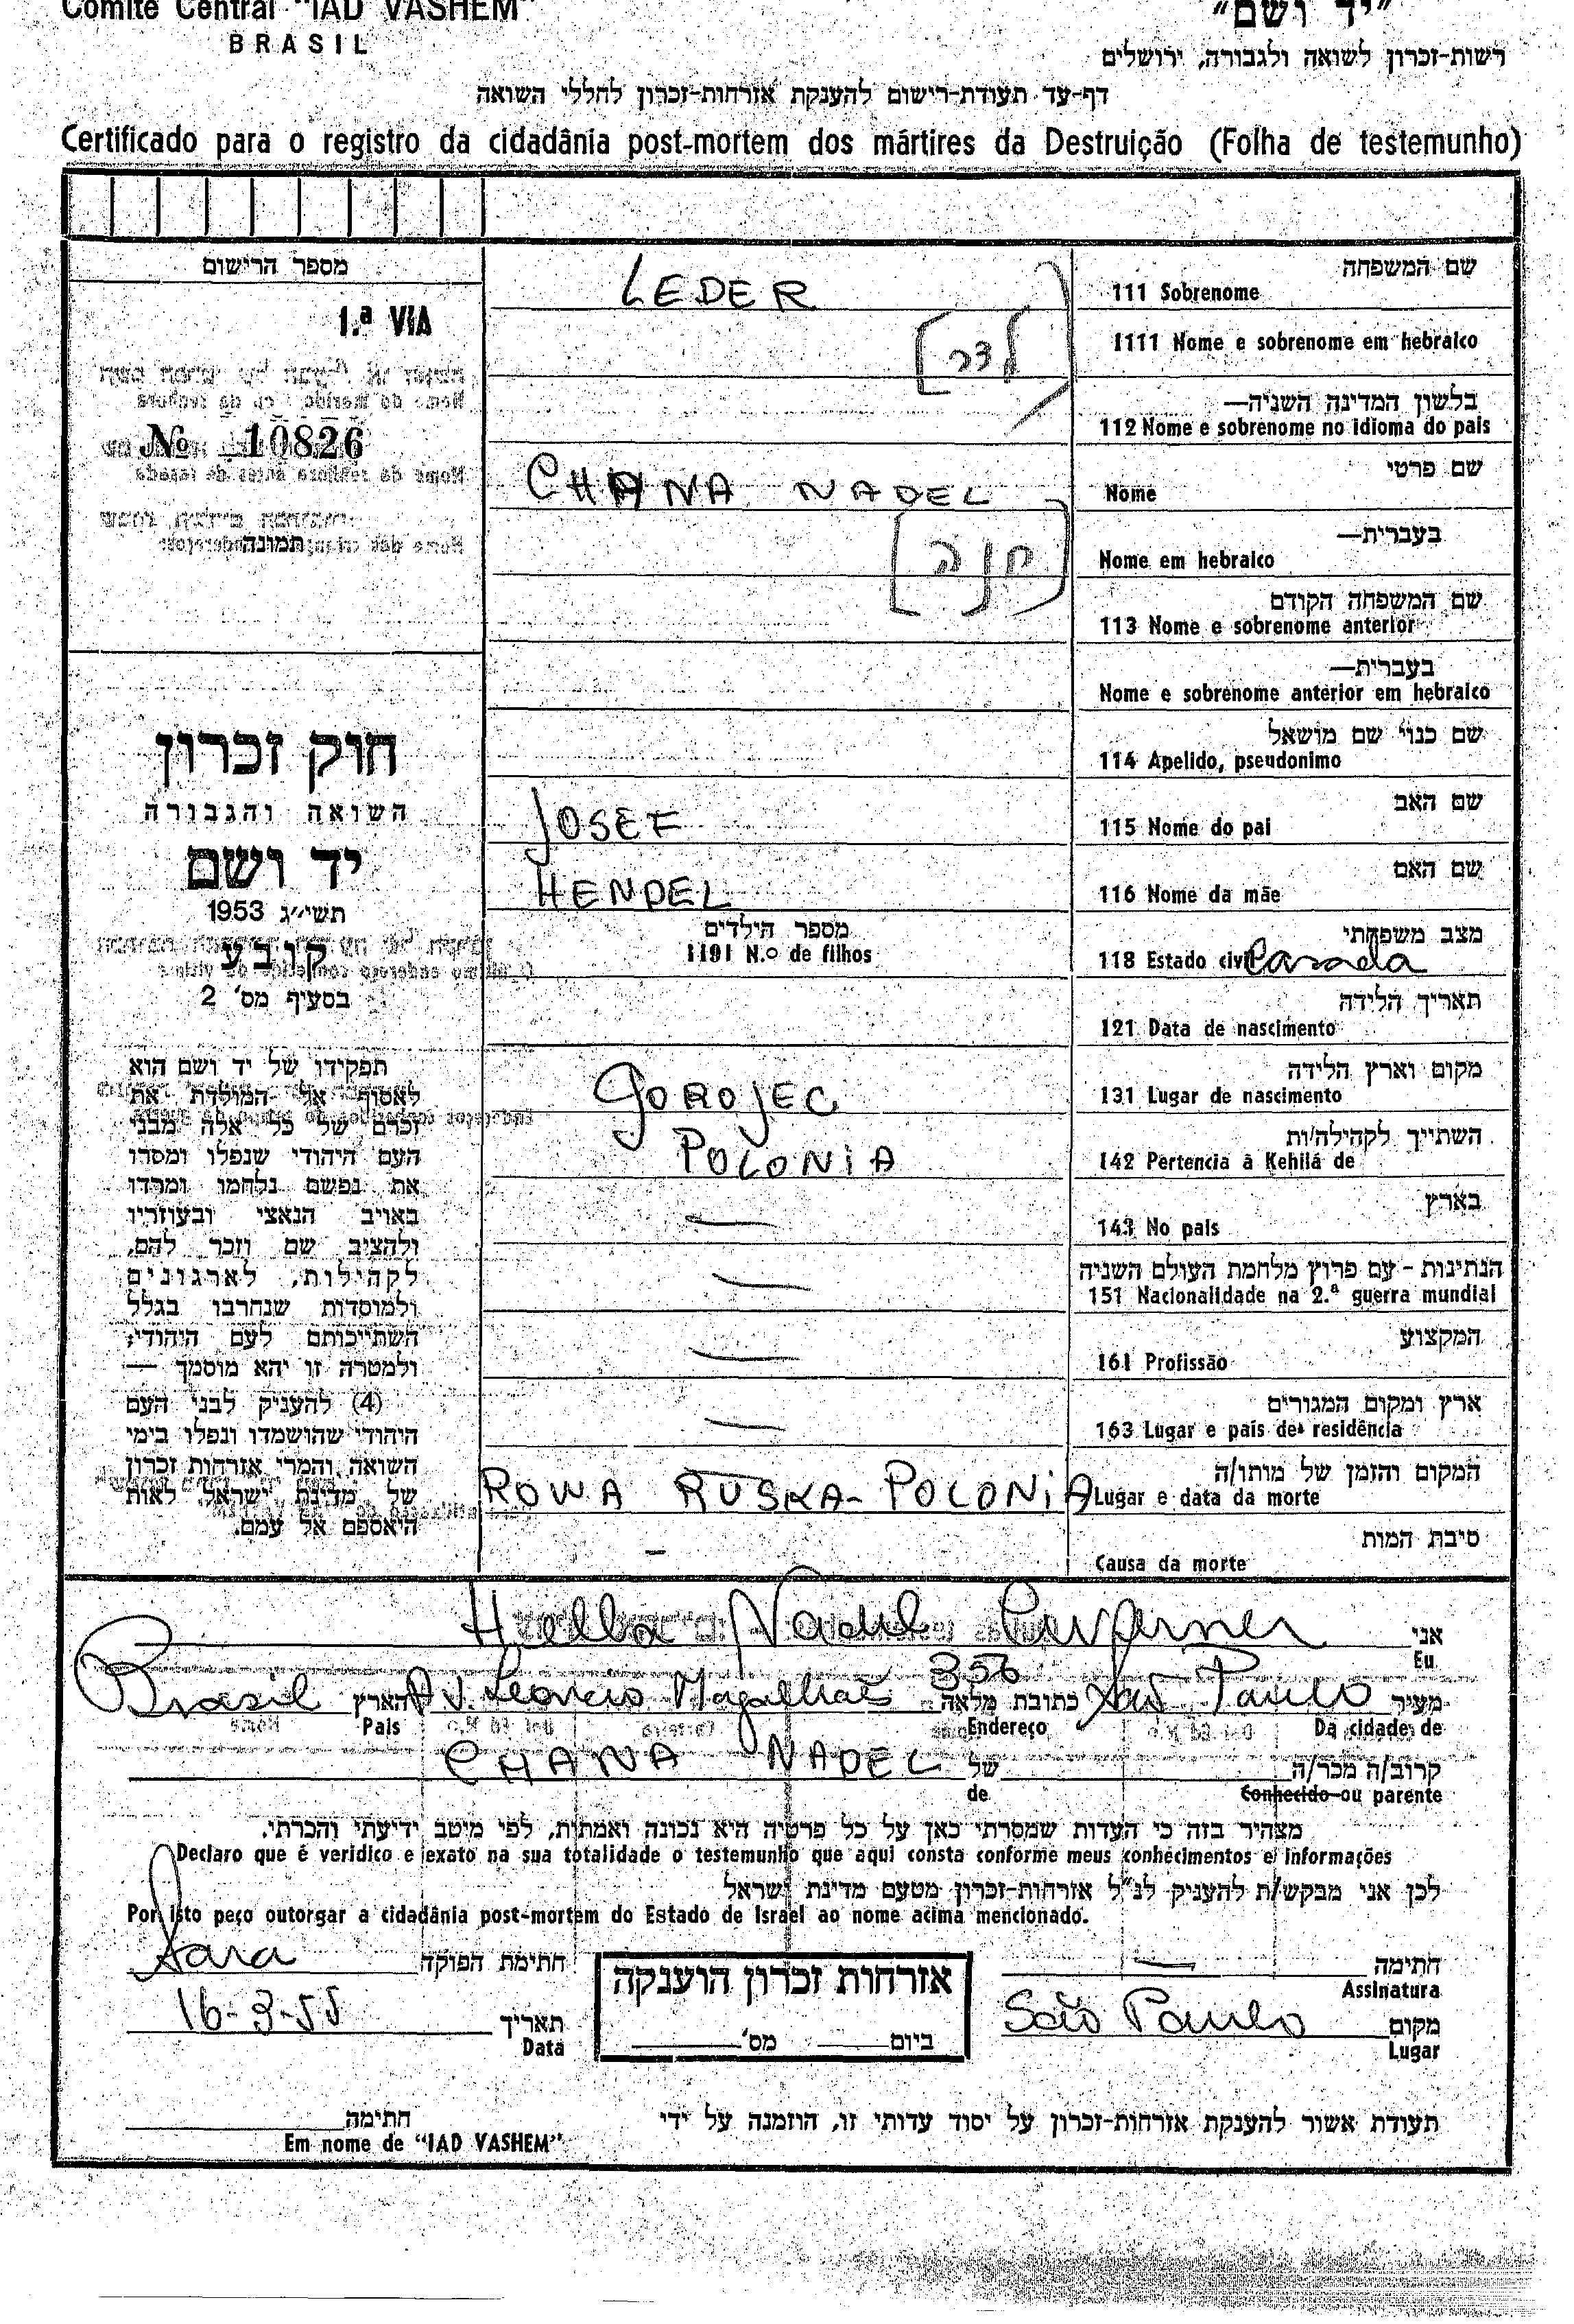 Comité Central "IAD VASHEM"
BRASIL
"יד ושם"
רשות-זכרון לשואה ולגבורה, ירושלים
דף-עד תעודת-רישום להענקת אזרחות-זכרון לחללי השואה
Certificado para o registro da cidadânia post-mortem dos mártires da Destruição (Folha de testemunho)
מספר הרישום
1.ª VIA
Nº 10826
תמונה
חוק זכרון
השואה והגבורה
יד ושם
תשי״ג 1953
קובע
בסעיף מס' 2
תפקידו של יד ושם הוא
לאסוף אל המולדת את
זכרם של כל אלה מבני
העם היהודי שנפלו ומסרו
את נפשם נלחמו ומרדו
באויב הנאצי ובעוזריו
ולהציב שם וזכר להם,
לקהילות, לארגונים
ולמוסדות שנחרבו בגלל
השתייכותם לעם היהודי;
ולמטרה זו יהא מוסמך —
(4) להעניק לבני העם
היהודי שהושמדו ונפלו בימי
השואה והמרי אזרחות זכרון
של מדינת ישראל לאות
היאספם אל עמם.
שם המשפחה
111 Sobrenome LEDER
1111 Nome e sobrenome em hebraico [לדר]
בלשון המדינה השניה—
112 Nome e sobrenome no idioma do pais
שם פרטי
Nome CHANA NADEL
בעברית—
Nome em hebraico [חנה]
שם המשפחה הקודם
113 Nome e sobrenome anterior
בעברית—
Nome e sobrenome anterior em hebraico
שם כנוי שם מושאל
114 Apelido, pseudonimo
שם האב
115 Nome do pai JOSEF
שם האם
116 Nome da mãe HENDEL
מצב משפחתי
118 Estado civil Casada
מספר הילדים
1191 N.º de filhos
תאריך הלידה
121 Data de nascimento
מקום וארץ הלידה
131 Lugar de nascimento GOROJEC
השתייך לקהילה/ות
142 Pertencia à Kehilá de POLONIA
בארץ
143 No pais —
הנתינות - עם פרוץ מלחמת העולם השניה
151 Nacionalidade na 2.ª guerra mundial —
המקצוע
161 Profissão —
ארץ ומקום המגורים
163 Lugar e pais de residência —
המקום והזמן של מותו/ה
Lugar e data da morte ROWA RUSKA - POLONIA
סיבת המות
Causa da morte —
אני
Eu Hella Nadel
מעיר São Paulo כתובת מלאה Av. Leoncio Magalhaes 356 הארץ Brasil
Da cidade de Endereço Pais
קרוב/ה מכר/ה של CHANA NADEL
Conhecido ou parente de
מצהיר בזה כי העדות שמסרתי כאן על כל פרטיה היא נכונה ואמתית, לפי מיטב ידיעתי והכרתי.
Declaro que é veridico e exato na sua totalidade o testemunho que aqui consta conforme meus conhecimentos e informações
לכן אני מבקש/ת להעניק לנ"ל אזרחות-זכרון מטעם מדינת ישראל
Por isto peço outorgar a cidadânia post-mortem do Estado de Israel ao nome acima mencionado.
חתימה —
Assinatura
חתימת הפוקה Sara
מקום São Paulo
Lugar
תאריך 16-3-55
Data
אזרחות זכרון הוענקה
ביום מס'
תעודת אשור להענקת אזרחות-זכרון על יסוד עדותי זו, הוזמנה על ידי
חתימה
Em nome de "IAD VASHEM"